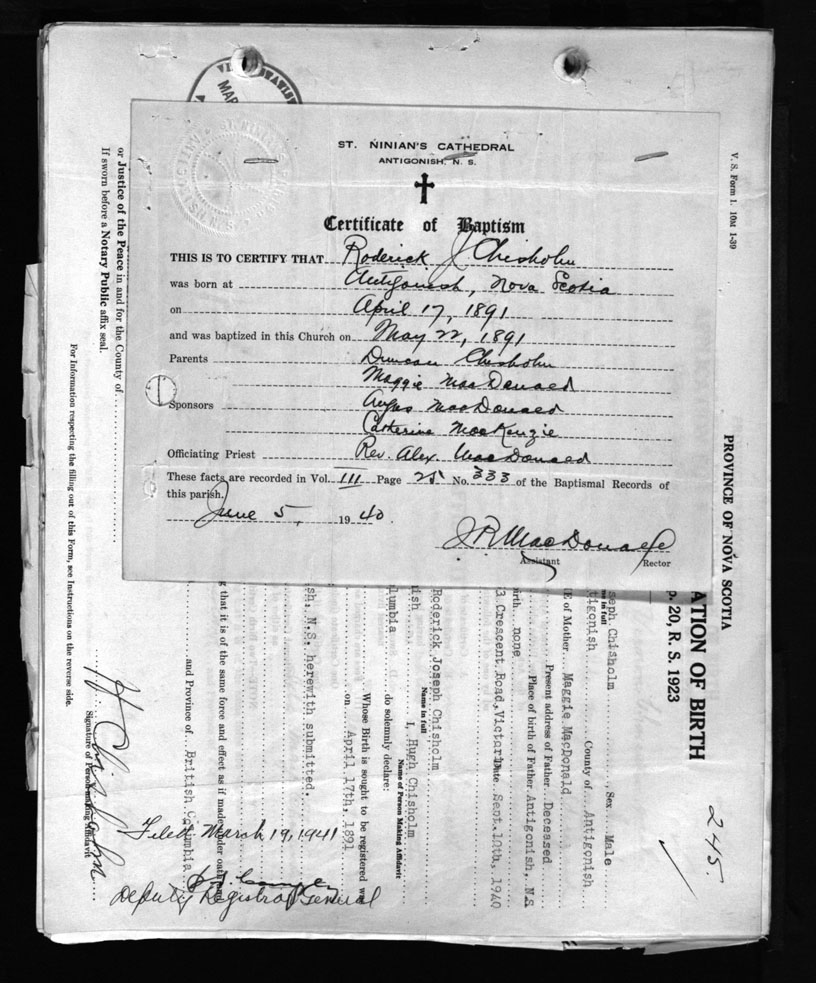 ST. NINIAN'S CATHEDRAL
ANTIGONISH, N. S.
Certificate of Baptism
THIS IS TO CERTIFY THAT Roderick J Chisholm
was born at Antigonish, Nova Scotia
on April 17, 1891
and was baptized in this Church on May 22, 1891
Parents Duncan Chisholm
Maggie MacDonald
Sponsors Angus MacDonald
Catherine MacKenzie
Officiating Priest Rev. Alex. MacDonald
These facts are recorded in Vol. III Page 25 No. 333 of the Baptismal Records of
this parish.
June 5, 1940
J.R. MacDonald
Assistant Rector
V. S. Form 1. 10M 1-39
PROVINCE OF NOVA SCOTIA
ATION OF BIRTH
20, R. S. 1923
245.
seph Chisholm Sex Male
tigonish County of Antigonish
E of Mother Maggie MacDonald
Present address of Father Deceased
Place of birth of Father Antigonish, N.S
irth none
3 Crescent Road, Victoria Date Sept. 10th, 1940
Roderick Joseph Chisholm
Name in full
I, Hugh Chisholm
Name of Person Making Affidavit
nish
lumbia do solemnly declare:
Whose Birth is sought to be registered w
on April 17th, 1891
sh, N.S. herewith submitted
g that it is of the same force and effect as if made under oath
and Province of British Columbia
Filed March 19, 1941
Deputy Registrar General
H Chisholm
Signature of Person making Affidavit
or Justice of the Peace in and for the County of
If sworn before a Notary Public affix seal.
For Information respecting the filling out of this Form, see Instructions on the reverse side.